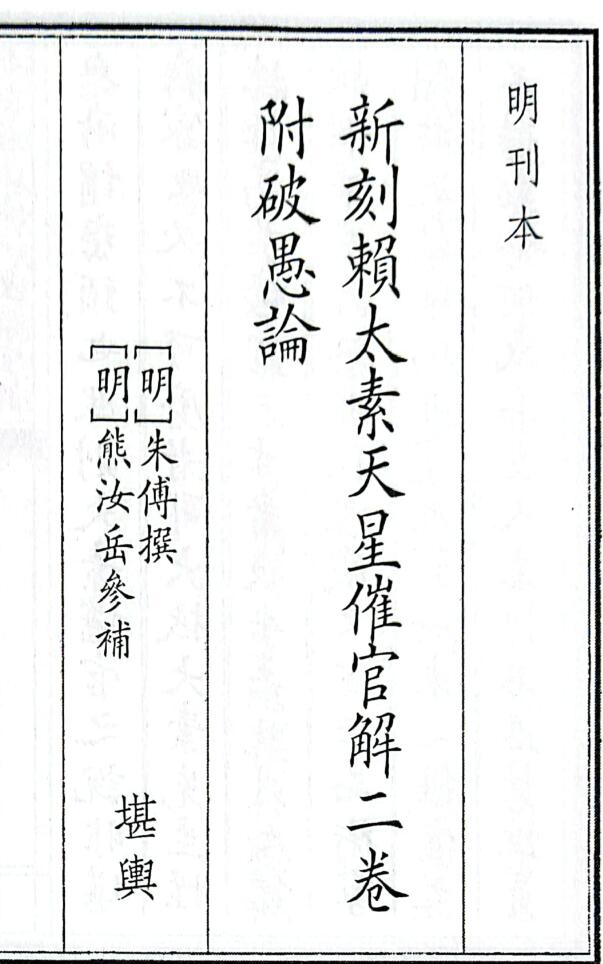 明刊本
新刻賴太素天星催官解二卷
附破愚論
［明］朱傅撰
［明］熊汝岳參補
堪輿